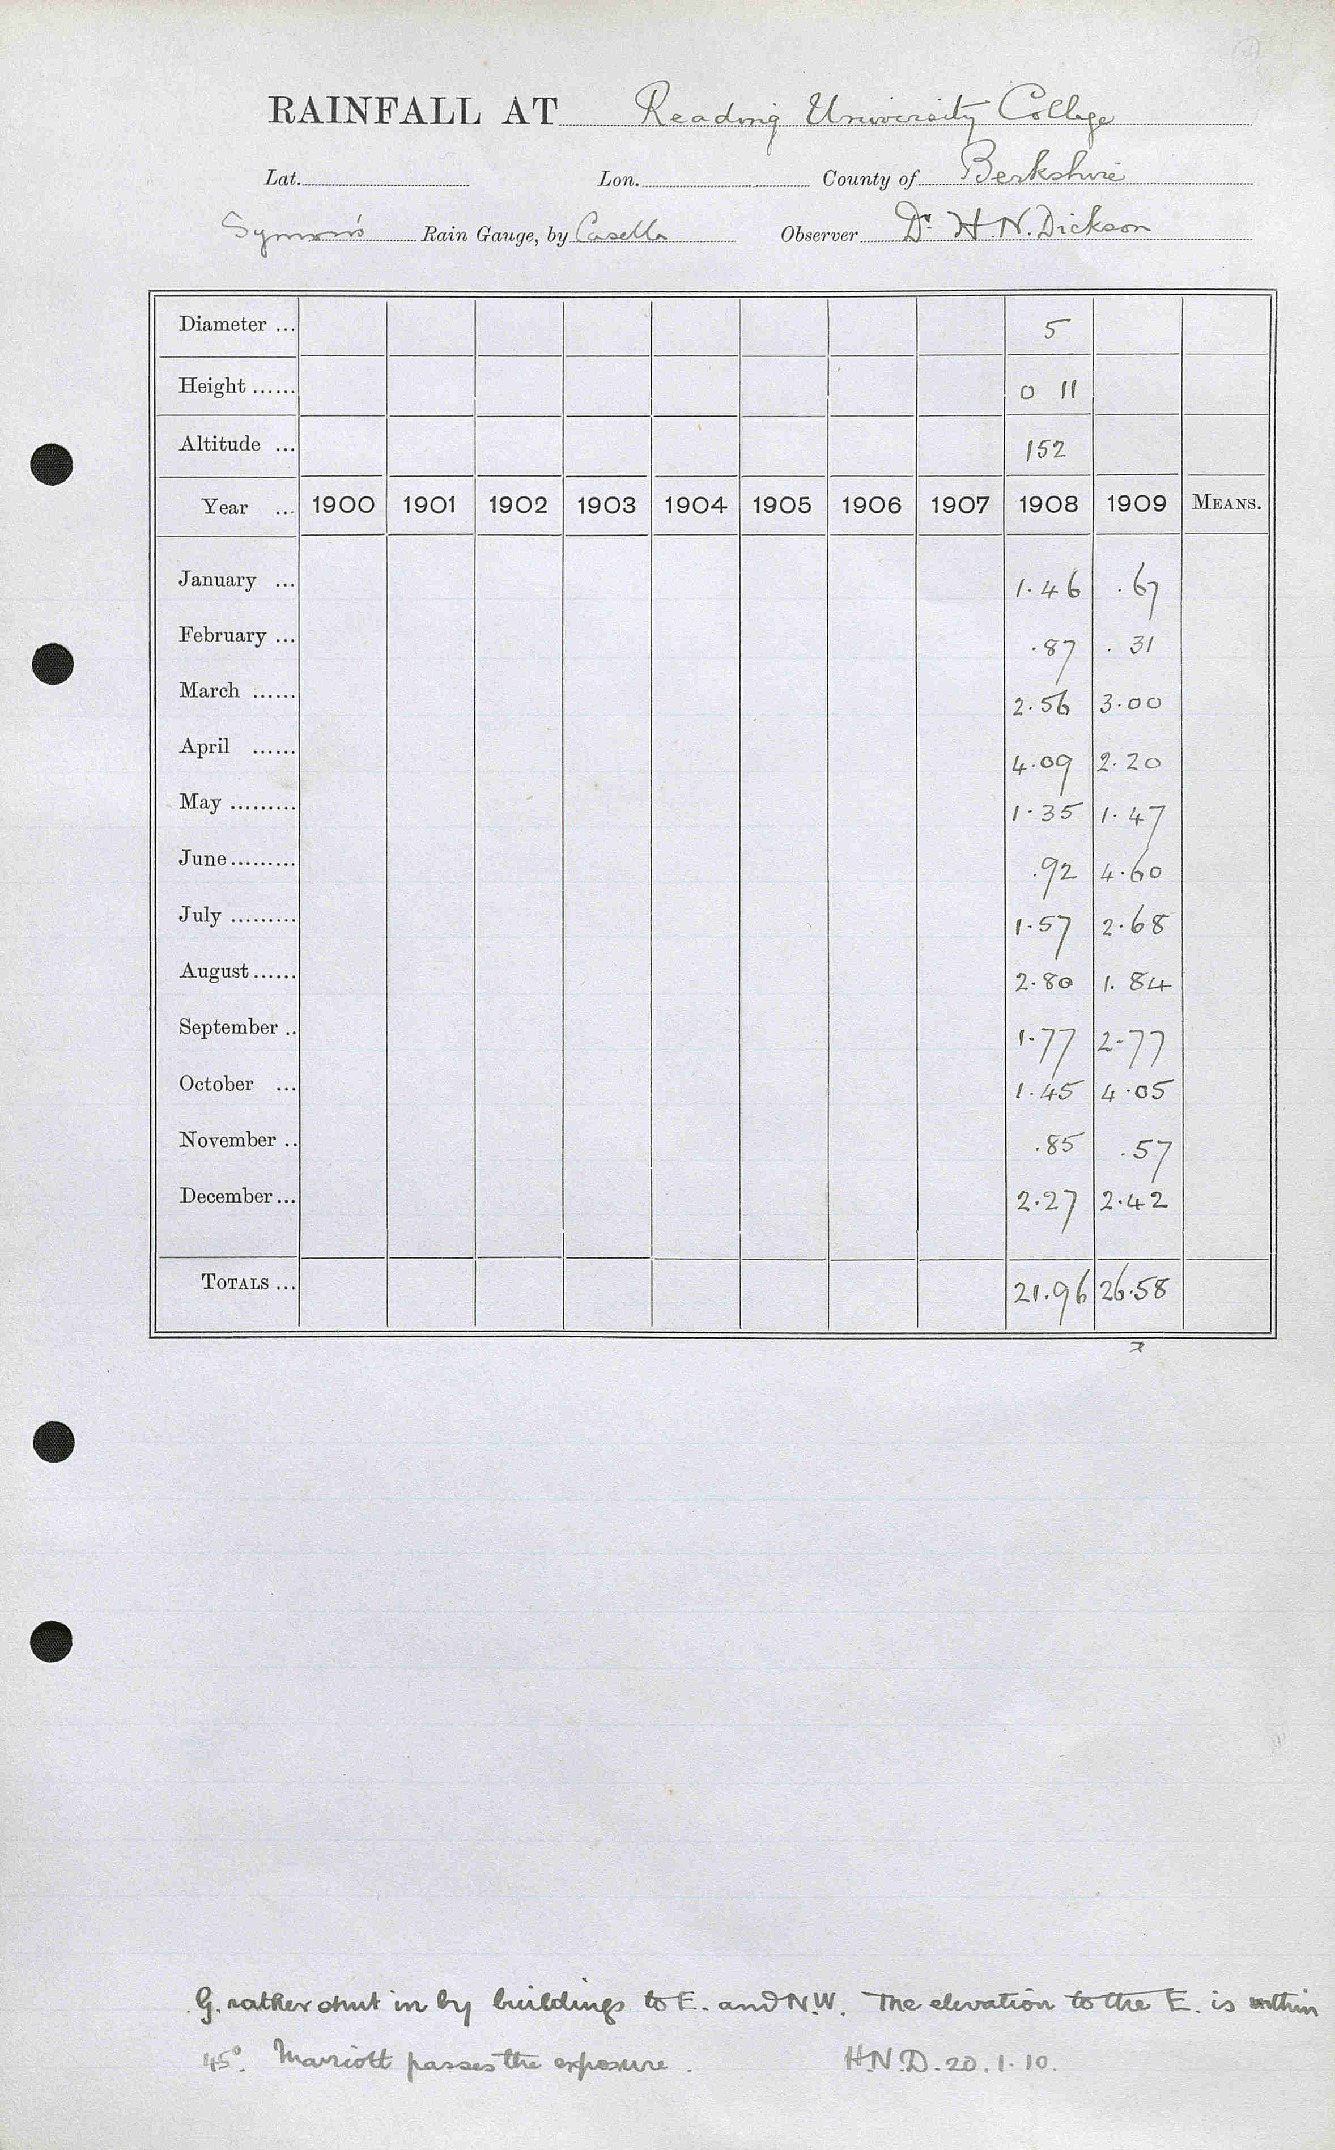 RAINFALL AT Reading University College
Lat. Lon. County of Berkshire
Symons's Rain Gauge, by Casella Observer Dr. H.N. Dickson
Diameter ... 5
Height ...... 0 11
Altitude ... 152
Year ... 1900 1901 1902 1903 1904 1905 1906 1907 1908 1909 MEANS.
January ... 1.46 .67
February ... .87 .31
March ...... 2.56 3.00
April ...... 4.09 2.20
May ......... 1.35 1.47
June ......... .92 4.60
July ......... 1.57 2.68
August ...... 2.80 1.84
September .. 1.77 2.77
October ... 1.45 4.05
November .. .85 .57
December ... 2.27 2.42
TOTALS ... 21.96 26.58
x
G. rather shut in by buildings to E. and N.W. The elevation to the E. is within
45°. Marriott passes the exposure. H.N.D. 20.1.10.